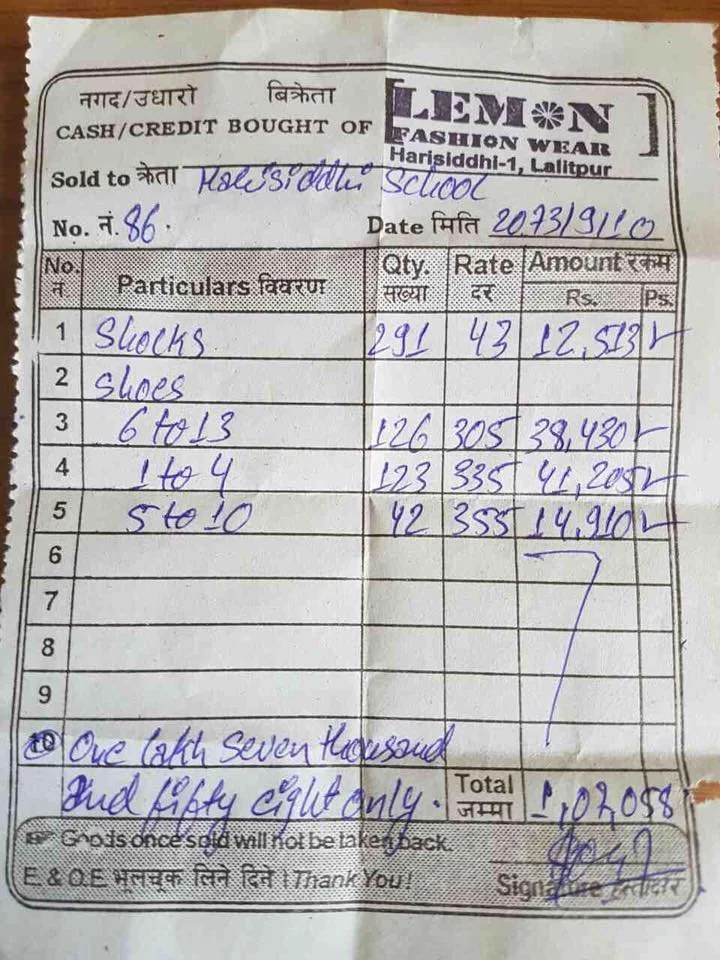 नगद/उधारो बिक्रेता
CASH/CREDIT BOUGHT OF
[LEMON]
FASHION WEAR
Harisiddhi-1, Lalitpur
Sold to क्रेता Harisiddhi School
No. नं. 86. Date मिति 2073/9/10
No. नं Particulars विवरण Qty. सख्या Rate दर Amount रकम Rs. Ps.
1 Shocks 291 43 12,513
2 Shoes
3 6 to 13 126 305 38,430
4 1 to 4 123 335 41,205
5 5 to 10 42 355 14,910
6
7
8
9
10 One lakh seven thousand
and fifty eight only. Total जम्मा 1,07,058
Goods once sold will not be taken back.
E & O.E भूलचूक लिने दिने ! Thank You! Signature हस्ताक्षर